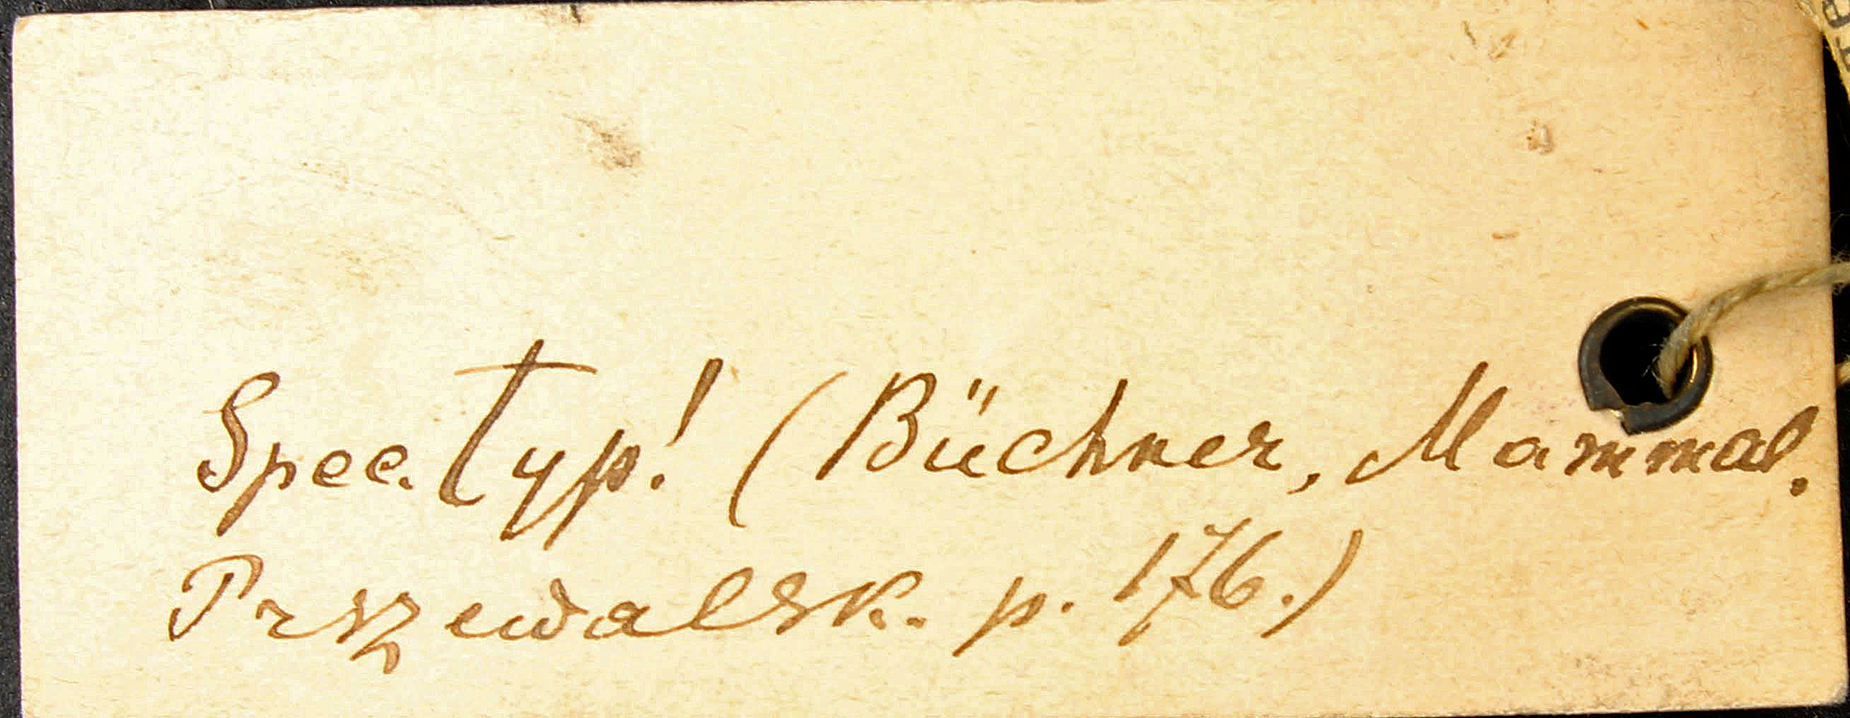 Spec. Typ! (Büchner, Mammal.
Przewalsk. p. 176.)